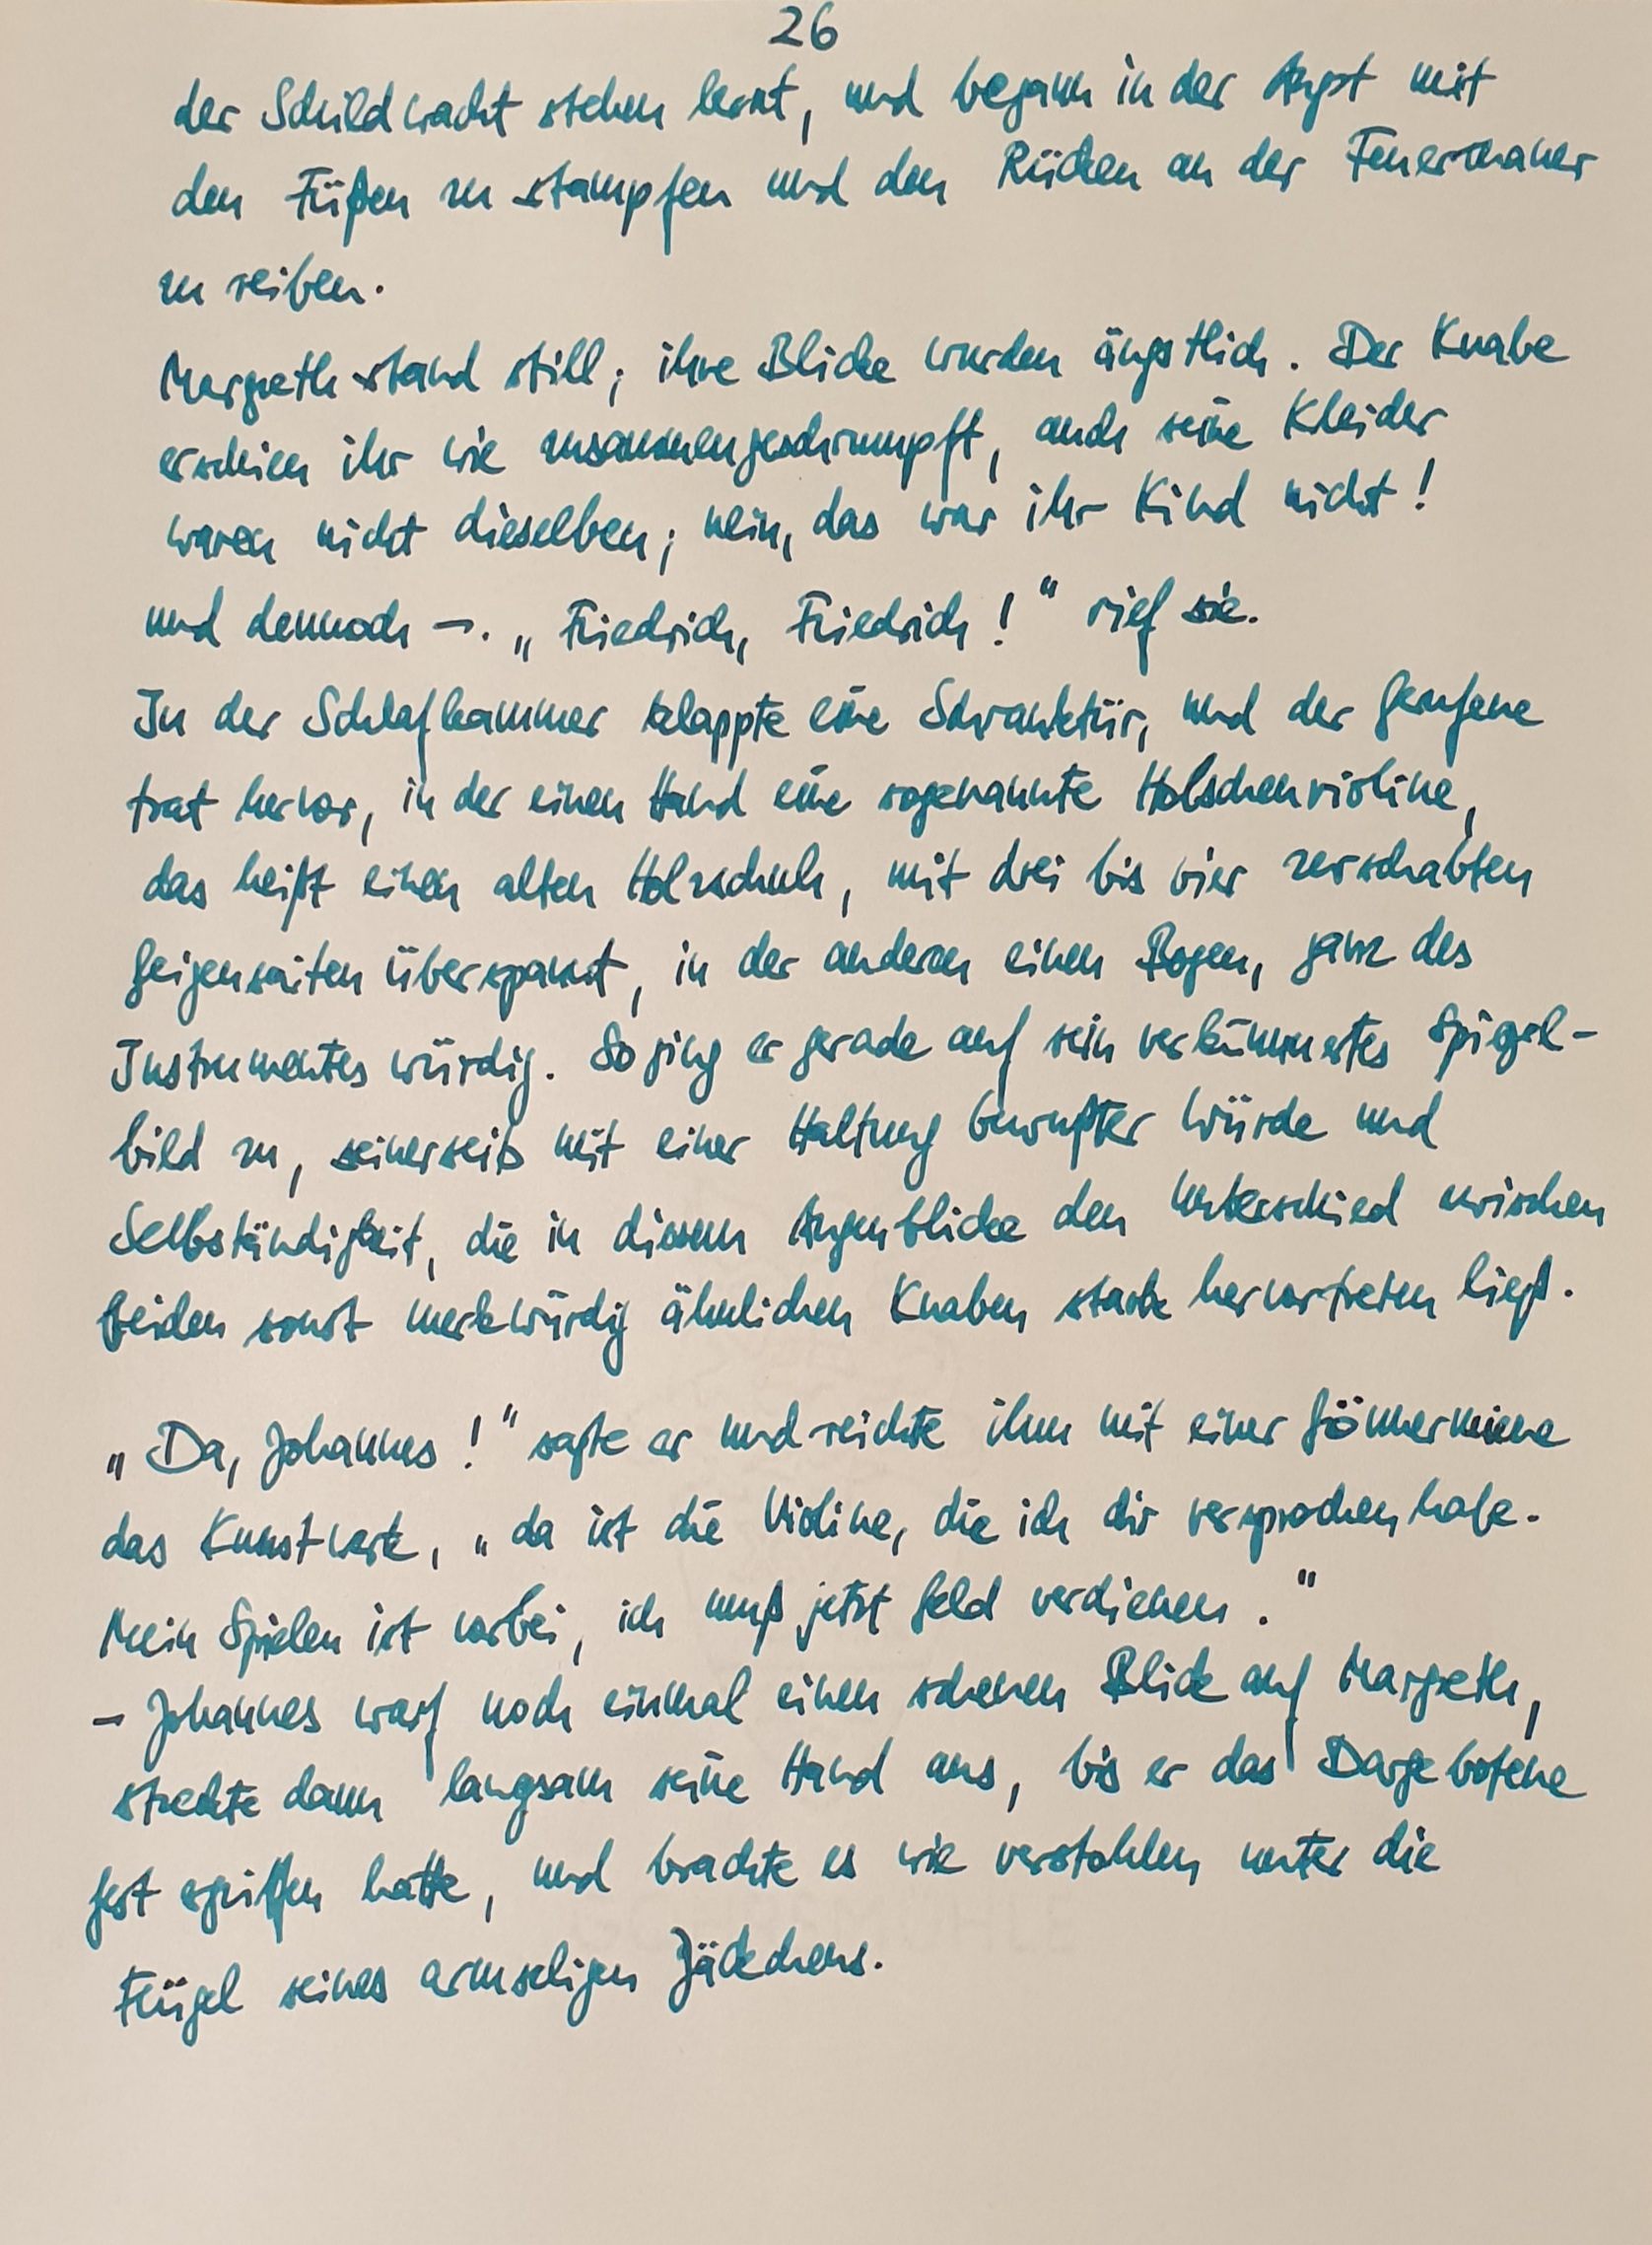 26
der Schildwacht stehen lernt, und begann in der Angst mit
den Füßen zu stampfen und den Rücken an der Feuermauer
zu reiben.
Margreth stand still; ihre Blicke wurden ängstlich. Der Knabe
erschien ihr wie zusammengeschrumpft, auch seine Kleider
waren nicht dieselben; nein, das war ihr Kind nicht!
und dennoch –. „Friedrich, Friedrich!“ rief sie.
In der Schlafkammer klappte eine Schranktür, und der Gerufene
trat hervor, in der einen Hand eine sogenannte Holschenvioline,
das heißt einen alten Holzschuh, mit drei bis vier zerschabten
Geigensaiten überspannt, in der anderen einen Bogen, ganz des
Instrumentes würdig. So ging er gerade auf sein verkümmertes Spiegel-
bild zu, seinerseits mit einer Haltung bewußter Würde und
Selbständigkeit, die in diesem Augenblicke den Unterschied zwischen
beiden sonst merkwürdig ähnlichen Knaben stark hervortreten ließ.
„Da, Johannes!“ sagte er und reichte ihm mit einer Gönnermiene
das Kunstwerk, „da ist die Violine, die ich dir versprochen habe.
Mein Spielen ist vorbei, ich muß jetzt Geld verdienen.“
– Johannes warf noch einmal einen scheuen Blick auf Margreth,
streckte dann langsam seine Hand aus, bis er das Dargebotene
fest ergriffen hatte, und brachte es wie verstohlen unter die
Flügel seines armseligen Jäckchens.